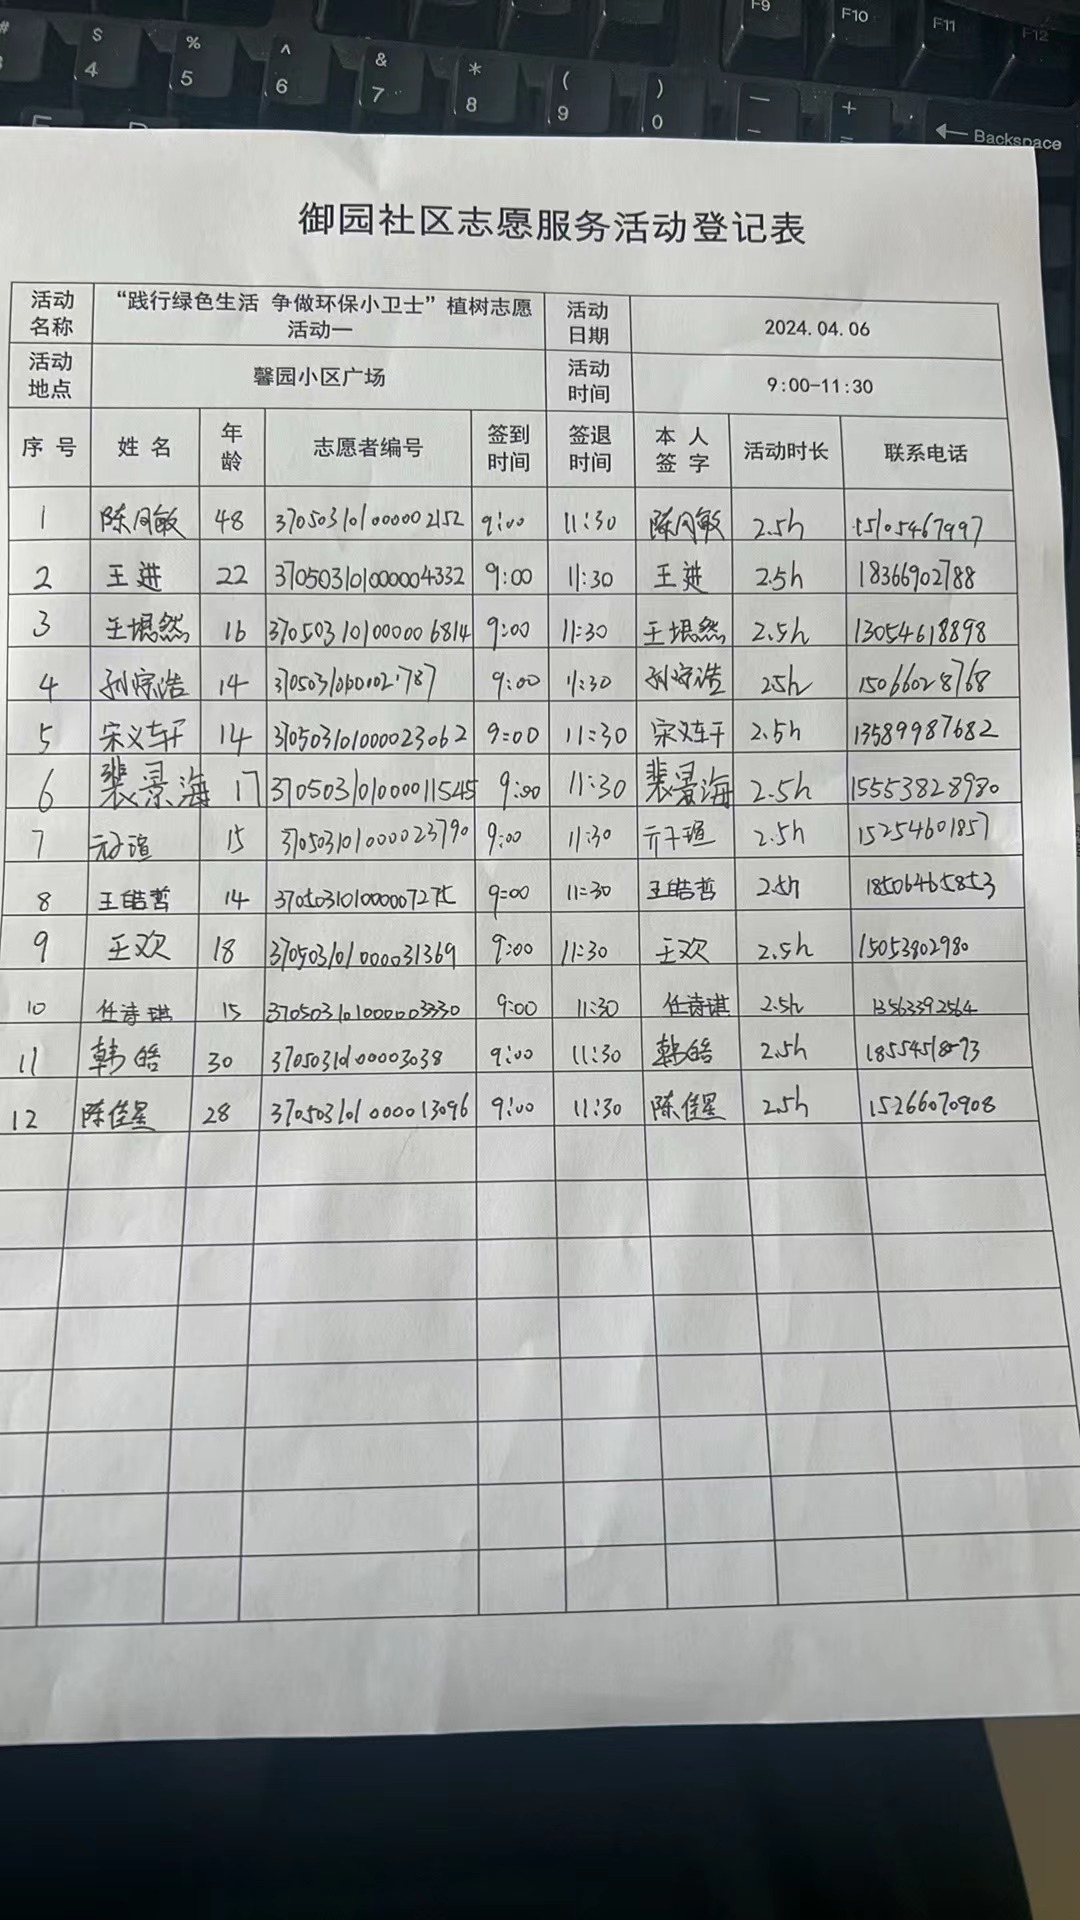 $ 4
% 5
^ 6
& 7
* 8
( 9
) 0
— -
+ =
← Backspace
F9
F10
F11
F12
御园社区志愿服务活动登记表
活动名称 “践行绿色生活 争做环保小卫士”植树志愿活动一 活动日期 2024.04.06
活动地点 馨园小区广场 活动时间 9:00-11:30
序号 姓名 年龄 志愿者编号 签到时间 签退时间 本人签字 活动时长 联系电话
1 陈同敏 48 370503101000002152 9:00 11:30 陈同敏 2.5h 15105467997
2 王进 22 370503101000004332 9:00 11:30 王进 2.5h 18366902788
3 王堒然 16 370503101000006814 9:00 11:30 王堒然 2.5h 13054618898
4 孙淙浩 14 9:00 11:30 孙淙浩 25h 15066028768
5 宋义轩 14 370503101000023062 9:00 11:30 宋义轩 2.5h 13589987682
6 裴景海 17 370503101000011545 9:00 11:30 裴景海 2.5h 15553828980
7 15 370503101000023790 9:00 11:30 2.5h 15254601857
8 王皓哲 14 370503101000007275 9:00 11:30 王皓哲 2.5h 18506465853
9 王欢 18 370503101000031369 9:00 11:30 王欢 2.5h 15053802980
10 任诗琪 15 370503101000003330 9:00 11:30 任诗琪 2.5h 13563392564
11 韩皓 30 37050310100003038 9:00 11:30 韩皓 2.5h
12 陈佳星 28 370503101000013096 9:00 11:30 陈佳星 2.5h 15266070908